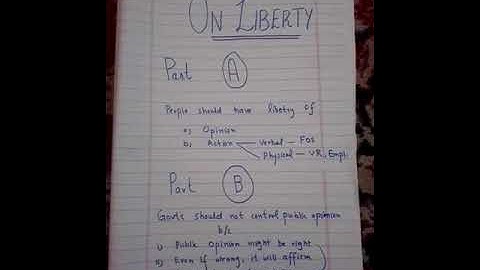 ON LIBERTY
Part A
People should have libetry of
a) Opinion
b) Action — Verbal — FOS
Physical — VR, Empl.
Part B
Govts should not control public opinion
b/c
i) Public Opinion might be right
ii) Even if wrong, it will affirm